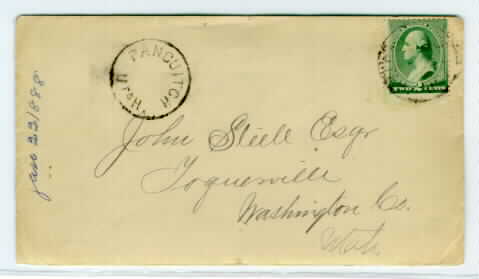 PANGUITCH
UTAH
TWO CENTS
Jan 23/1888
John Steele Esqr
Toquerville
Washington Co.
Utah